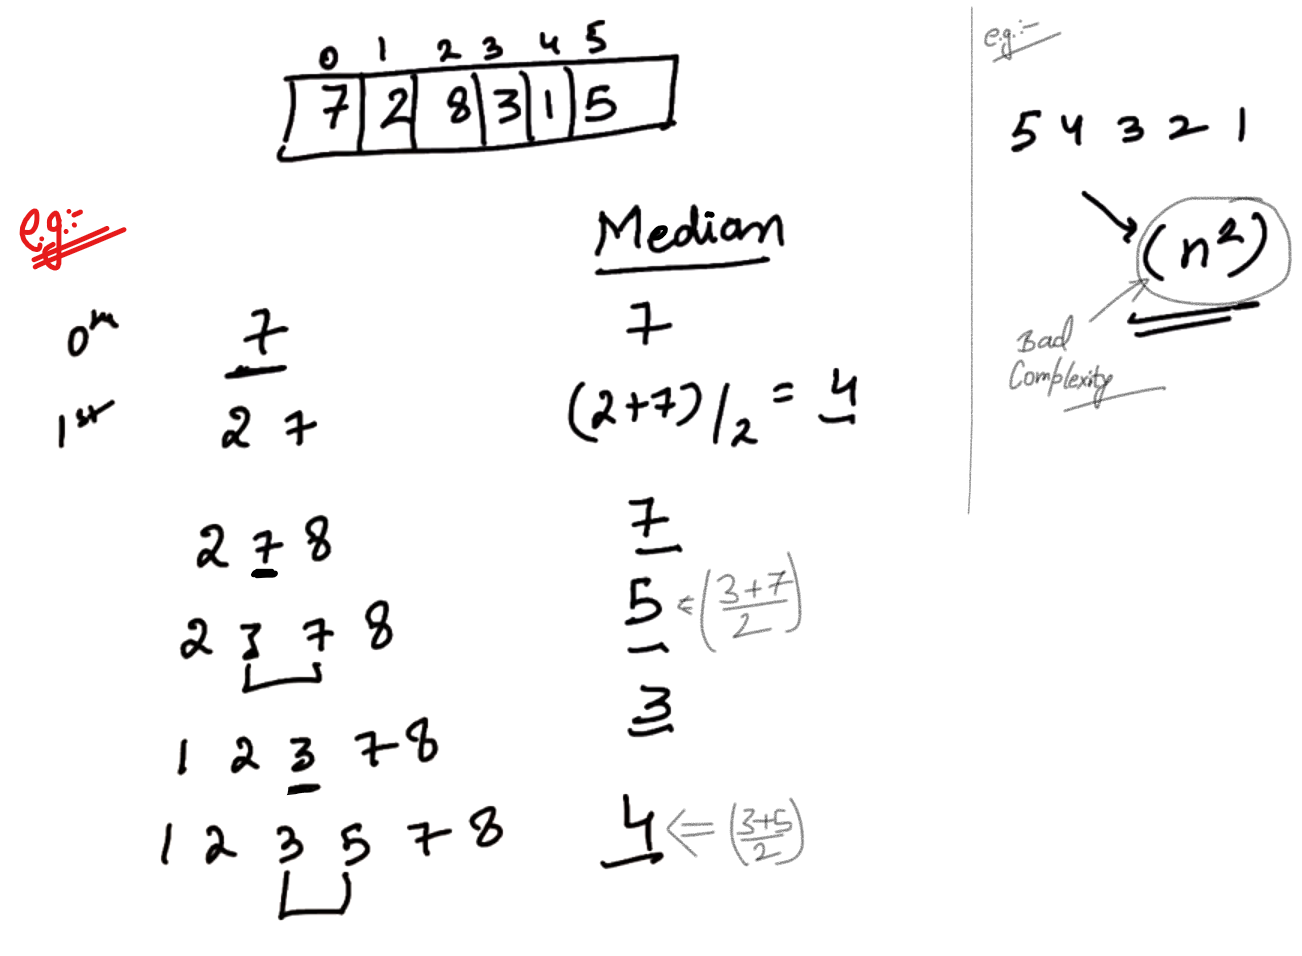 0 1 2 3 4 5
7 2 8 3 1 5
e.g:-
Median
0th 7 7
1st 2 7 (2+7)/2 = 4
2 7 8 7
2 3 7 8 5 ⇐ (3+7/2)
1 2 3 7 8 3
1 2 3 5 7 8 4 ⇐ (3+5/2)
e.g:-
5 4 3 2 1
(n²)
Bad
Complexity